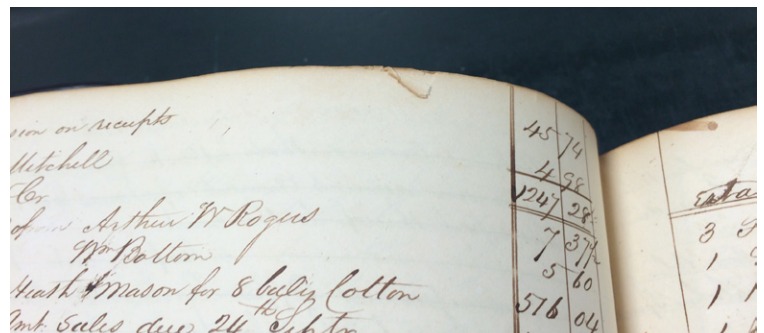 sion on receipts 45 74
Mitchell 4 98
Cr 1247 28
of Arthur W Rogers 7 37½
Wm Bottom 5 60
Heath & Mason for 8 bales Cotton 516 04
Amt Sales due 24th Septr
Esta
3
1
1